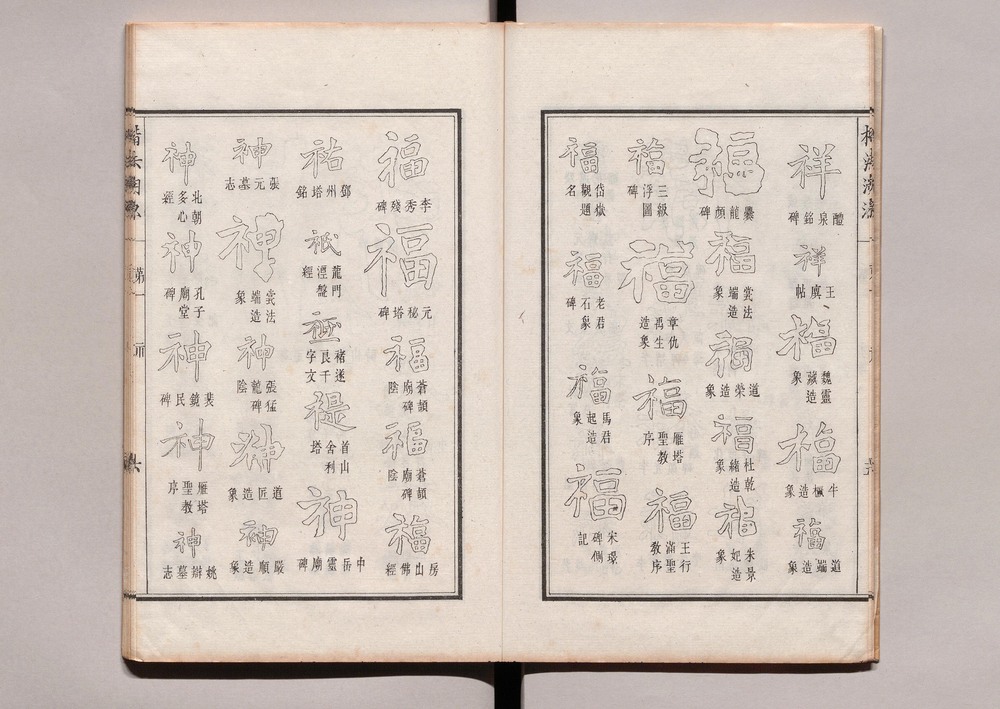 祥
醴泉銘碑
祥
王虞帖
福
魏靈藏造象
福
牛橛造象
福
道端造象
福
爨龍顏碑
福
裳法端造象
福
道榮造象
福
杜乾緒造象
福
朱景妃造象
福
三級浮圖碑
福
章仇禹生造象
福
雁塔聖教序
福
王行滿聖教序
福
岱嶽觀題名
福
老君石象碑
福
馬君起造象
福
宋璟碑側記
福
李秀殘碑
福
元秘塔碑
福
蒼頡廟碑陰
福
蒼頡廟碑陰
福
房山佛經
祐
鄧州塔銘
祇
龍門涅盤經
褚遂良千文字
禔
首山舍利塔
神
中岳靈廟碑
神
張元墓志
神
裳法端造象
神
張猛龍碑陰
神
道匠造象
神
嚴順造象
神
北朝多心經
神
孔子廟堂碑
神
裴鏡民碑
神
雁塔聖教序
神
姚辯墓志